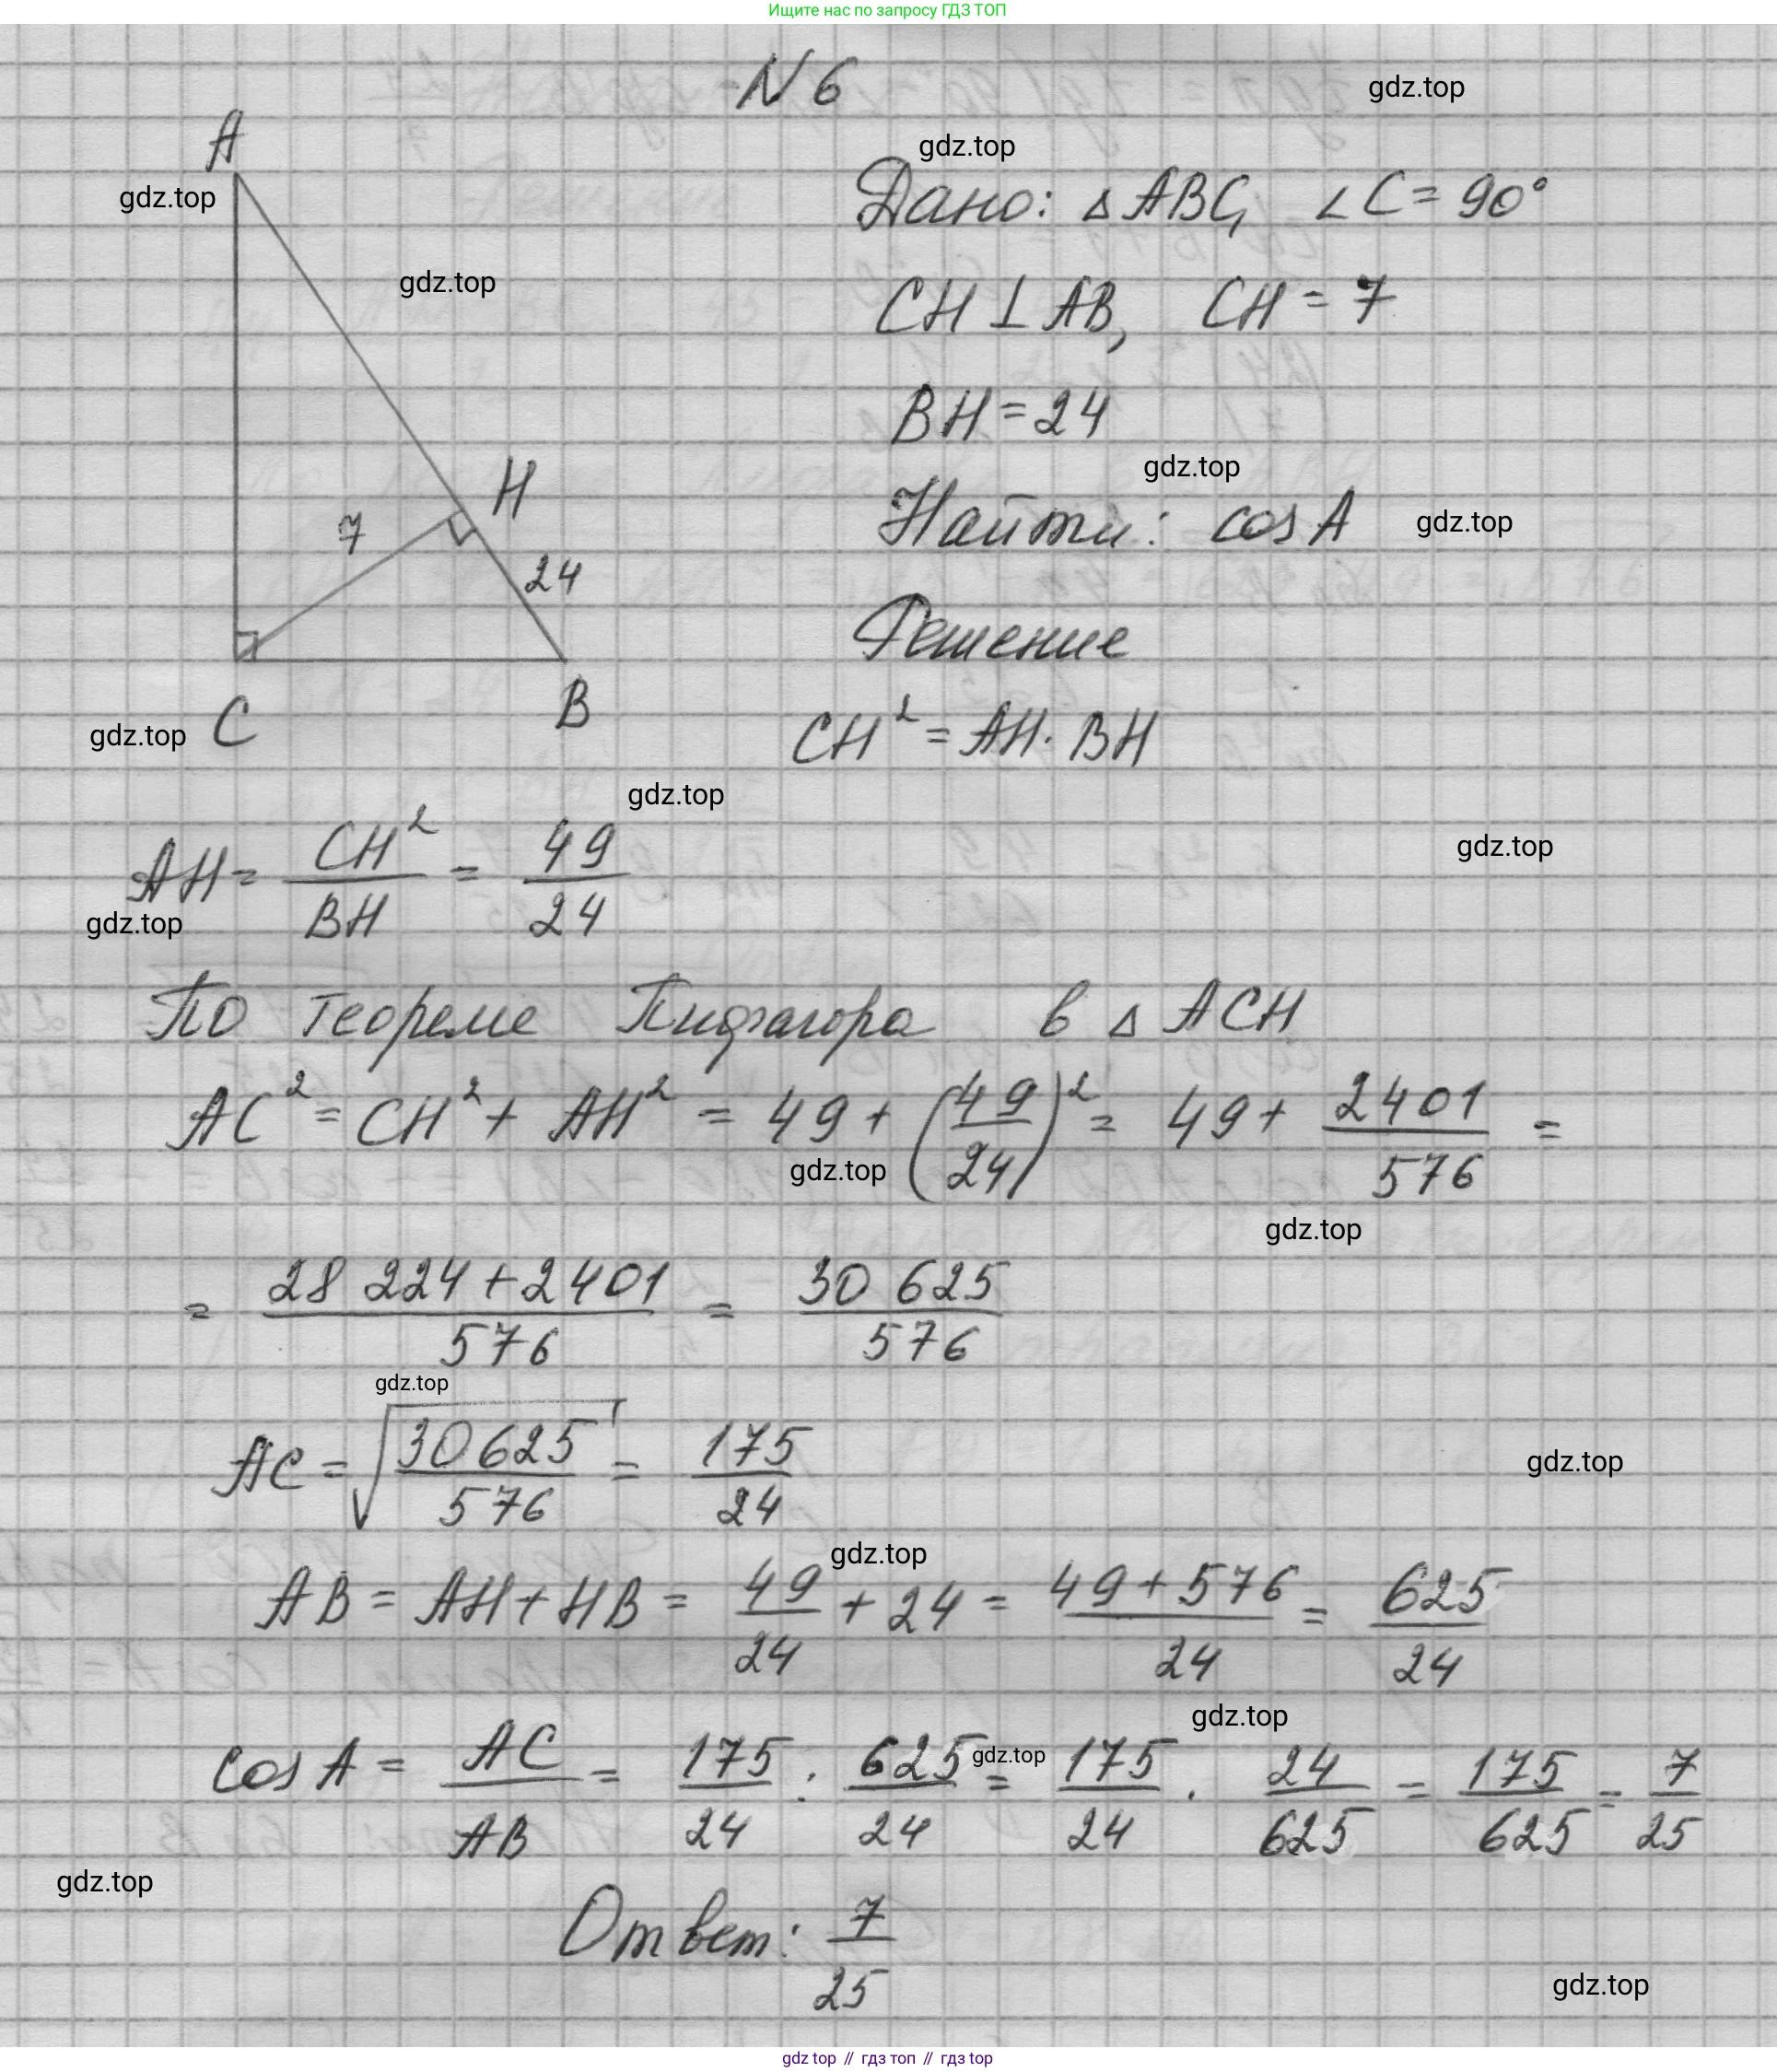 Ищите нас по запросу ГДЗ ТОП
N 6
gdz.top
gdz.top
A
gdz.top
Дано: △ ABC, ∠C = 90°
gdz.top
CH ⊥ AB, CH = 7
BH = 24
gdz.top
H
7
Найти: cos A
gdz.top
24
Решение
C
B
gdz.top
CH² = AH · BH
gdz.top
gdz.top
AH = CH²/BH = 49/24
gdz.top
По теореме Пифагора в △ ACH
AC² = CH² + AH² = 49 + (49/24)² = 49 + 2401/576 =
gdz.top
gdz.top
= 28 224 + 2401/576 = 30 625/576
gdz.top
AC = √30625/576 = 175/24
gdz.top
gdz.top
AB = AH + HB = 49/24 + 24 = 49 + 576/24 = 625/24
gdz.top
cos A = AC/AB = 175/24 : 625/24 = 175/24 · 24/625 = 175/625 = 7/25
gdz.top
gdz.top
Ответ: 7/25
gdz.top
gdz top // гдз топ // gdz top